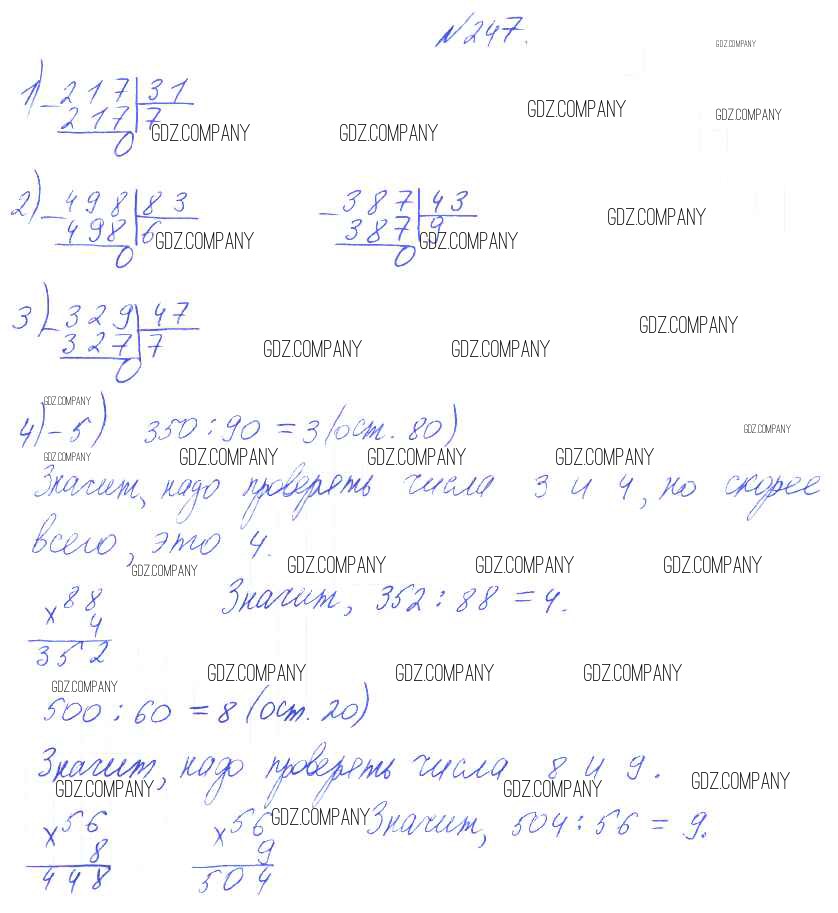 N 247.
GDZ.COMPANY
1) - 217 | 31
GDZ.COMPANY GDZ.COMPANY
217 | 7 GDZ.COMPANY GDZ.COMPANY
0
2) - 498 | 83 - 387 | 43
GDZ.COMPANY
498 | 6 GDZ.COMPANY 387 | 9 GDZ.COMPANY
0 0
3) - 329 | 47
GDZ.COMPANY
327 | 7 GDZ.COMPANY GDZ.COMPANY
0
GDZ.COMPANY
4)-5) 350 : 90 = 3 (ост. 80)
GDZ.COMPANY
GDZ.COMPANY GDZ.COMPANY GDZ.COMPANY GDZ.COMPANY
Значит, надо проверять числа 3 и 4, но скорее
всего, это 4.
GDZ.COMPANY GDZ.COMPANY GDZ.COMPANY GDZ.COMPANY
x 88 Значит, 352 : 88 = 4.
4
352
GDZ.COMPANY GDZ.COMPANY GDZ.COMPANY GDZ.COMPANY
500 : 60 = 8 (ост. 20)
Значит, надо проверять числа 8 и 9.
GDZ.COMPANY GDZ.COMPANY GDZ.COMPANY
x 56 x 56 GDZ.COMPANY Значит, 504 : 56 = 9.
8 9
448 504